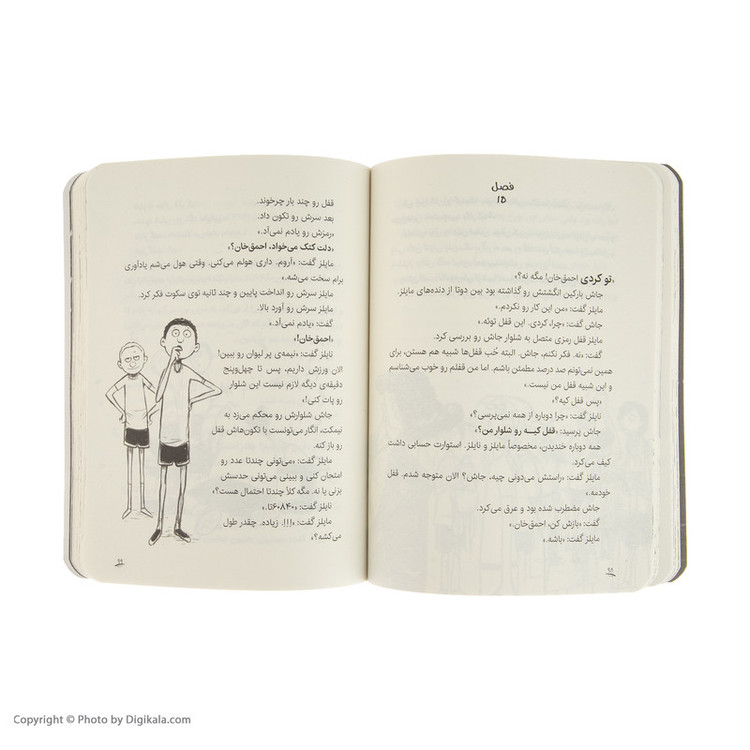 فصل
۱۵
«تو کردی احمق‌خان! مگه نه؟»
جاش بارکین انگشتش رو گذاشته بود بین دوتا از دنده‌های مایلز.
مایلز گفت: «من این کار رو نکردم.»
جاش گفت: «چرا، کردی. این قفل توئه.»
مایلز قفل رمزی متصل به شلوار جاش رو بررسی کرد.
گفت: «نه. فکر نکنم، جاش. البته خُب قفل‌ها شبیه هم هستن، برای
همین نمی‌تونم صد درصد مطمئن باشم. اما من قفلم رو خوب می‌شناسم
و این شبیه قفل من نیست.»
«پس قفل کیه؟»
نایلز گفت: «چرا دوباره از همه نمی‌پرسی؟»
جاش پرسید: «قفل کیـــه رو شلوار من؟»
همه دوباره خندیدن، مخصوصاً مایلز و نایلز. استوارت حسابی داشت
کیف می‌کرد.
مایلز گفت: «راستش می‌دونی چیه، جاش؟ الان متوجه شدم. قفل
خودمه.»
جاش مضطرب شده بود و عرق می‌کرد.
گفت: «بازش کن، احمق‌خان.»
مایلز گفت: «باشه.»
۹۸
قفل رو چند بار چرخوند.
بعد سرش رو تکون داد.
«رمزش رو یادم نمی‌آد.»
«دلت کتک می‌خواد، احمق‌خان؟»
مایلز گفت: «آروم. داری هولم می‌کنی. وقتی هول می‌شم یادآوری
برام سخت می‌شه.»
مایلز سرش رو انداخت پایین و چند ثانیه توی سکوت فکر کرد.
مایلز سرش رو آورد بالا.
گفت: «یادم نمی‌آد.»
«احمق‌خان!»
نایلز گفت: «نیمه‌ی پر لیوان رو ببین!
الان ورزش داریم، پس تا چهل‌وپنج
دقیقه‌ی دیگه لازم نیست این شلوار
رو پات کنی!»
جاش شلوارش رو محکم می‌زد به
نیمکت، انگار می‌تونست با تکون‌هاش قفل
رو باز کنه.
مایلز گفت: «می‌تونی چندتا عدد رو
امتحان کنی و ببینی می‌تونی حدسش
بزنی یا نه. مگه کلاً چندتا احتمال هست؟»
نایلز گفت: «۶۰۸۴۰تا.»
مایلز گفت: «!!!. زیاده. چقدر طول
می‌کشه؟»
۹۹
Copyright © Photo by Digikala.com